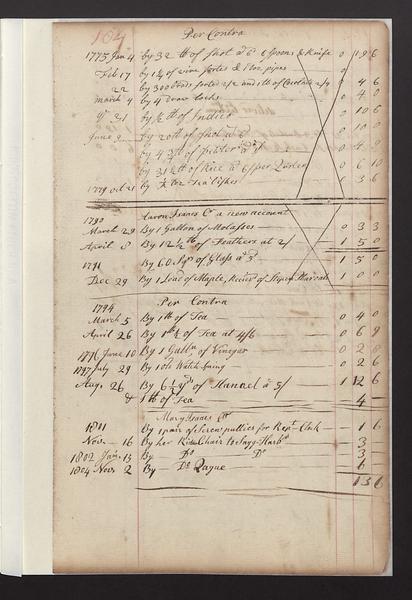 104
Per Contra
1775 Jan 4 by 32 lb of Shot a 6 6 Spoons & Knife 0 19 6
Feb 17 by 1/4 of wire sortes & Iron pipes 0
22 by 300 sorted 2/2 and 1 lb of Cocolate 2/4 0 4 6
March 4 by 4 Draw locks 0 4 0
21 by 1/2 lb of Indico 0 10 6
June 2 by 20 lb of Shot a 6 0 10 0
by 4 3/4 lb of pewter a 1/ 0 4
by 31 1/2 lb of Rice a per 0 6
1779 oct 21 by 1/2 Doz Tea Dishes 0 3 6
1790 Aaron Isaacs Cr a new account
March 29 By 1 Gallon of Molasses 0 3 3
April 8 By 12 1/2 lb of Feathers at 2/ 1 5 0
1791 By 60 Sqrs of Glass a 5d 1 5 0
Dec 29 By 1 Load of Maple, 1 0 0
1794 Per Contra
March 5 By 1 lb of Tea 0 4 0
April 26 By 1 1/2 lb of Tea at 4/6 0 6 9
1796 June 10 By 1 Galln of Vinegar 0 2 0
1797 July 29 By 1 old Watch Spring 0 2 6
Aug. 26 By 6 1/2 yds of Flannel a 5/ 1 12 6
& 1 lb of Tea 4
Mary Isaacs Cr
1801 By 1 pair of Screw pullies for Rept Clock 1 6
Novr 16 By her Ride Chair to Sagg Harbr 3
1802 Jan. 13 By Do Do 3
1804 Novr 2 By Do Quogue 6
13 6